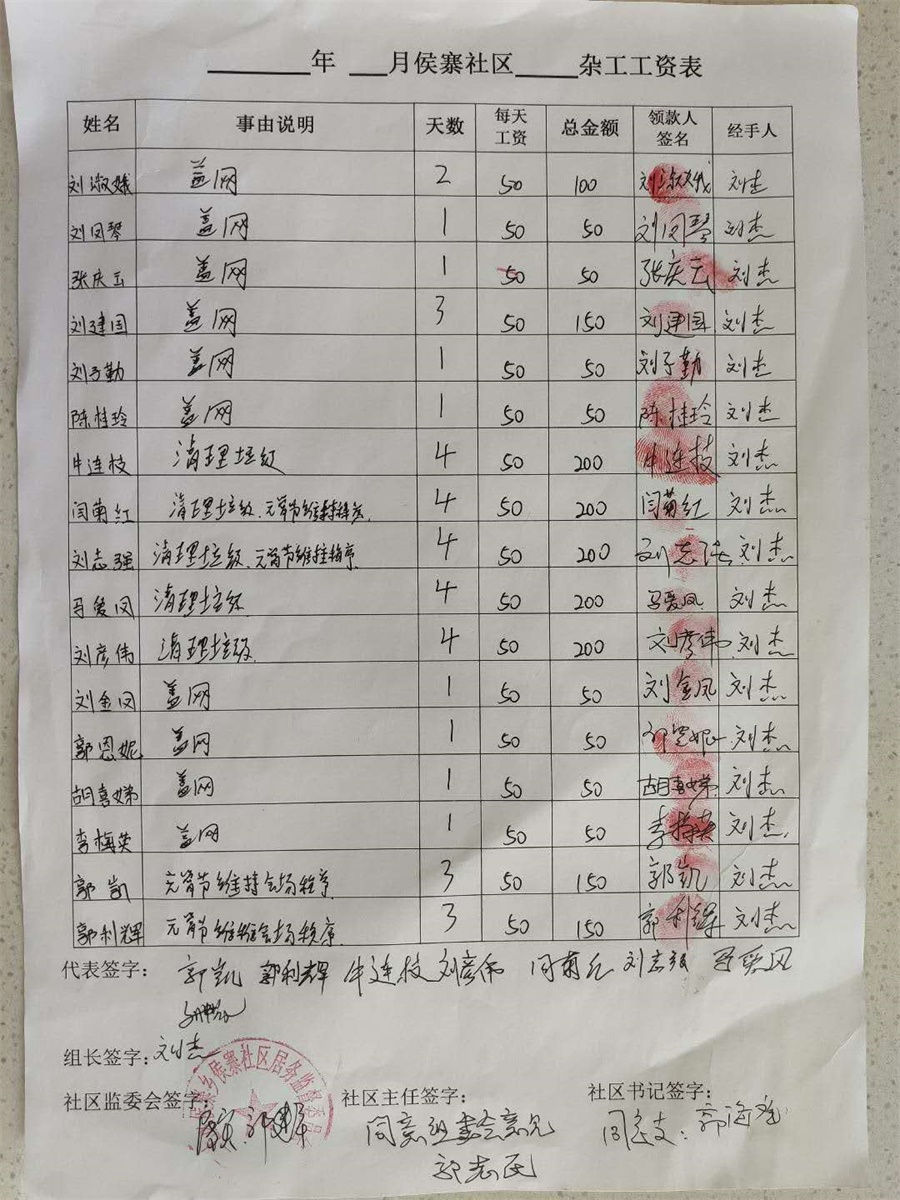 年 月侯寨社区 杂工工资表
姓名 事由说明 天数 每天工资 总金额 领款人签名 经手人
刘淑娥 盖网 2 50 100 刘淑娥 刘杰
刘凤琴 盖网 1 50 50 刘凤琴 刘杰
张庆云 盖网 1 50 50 张庆云 刘杰
刘建国 盖网 3 50 150 刘建国 刘杰
刘子勤 盖网 1 50 50 刘子勤 刘杰
陈桂玲 盖网 1 50 50 陈桂玲 刘杰
牛连枝 清理垃圾 4 50 200 牛连枝 刘杰
闫菊红 清理垃圾、元宵节维持秩序 4 50 200 闫菊红 刘杰
刘志强 清理垃圾、元宵节维持秩序 4 50 200 刘志强 刘杰
马爱凤 清理垃圾 4 50 200 马爱凤 刘杰
刘彦伟 清理垃圾 4 50 200 刘彦伟 刘杰
刘金凤 盖网 1 50 50 刘金凤 刘杰
郭恩妮 盖网 1 50 50 郭恩妮 刘杰
胡喜娣 盖网 1 50 50 胡喜娣 刘杰
李梅英 盖网 1 50 50 李梅英 刘杰
郭凯 元宵节维持会场秩序 3 50 150 郭凯 刘杰
郭利辉 元宵节维持会场秩序 3 50 150 郭利辉 刘杰
代表签字: 郭凯 郭利辉 牛连枝 刘彦伟 闫菊红 刘志强 马爱凤
组长签字: 刘杰
侯寨社区居务监督委员
社区监委会签字: 社区主任签字: 社区书记签字:
同意组委会意见
郭志民